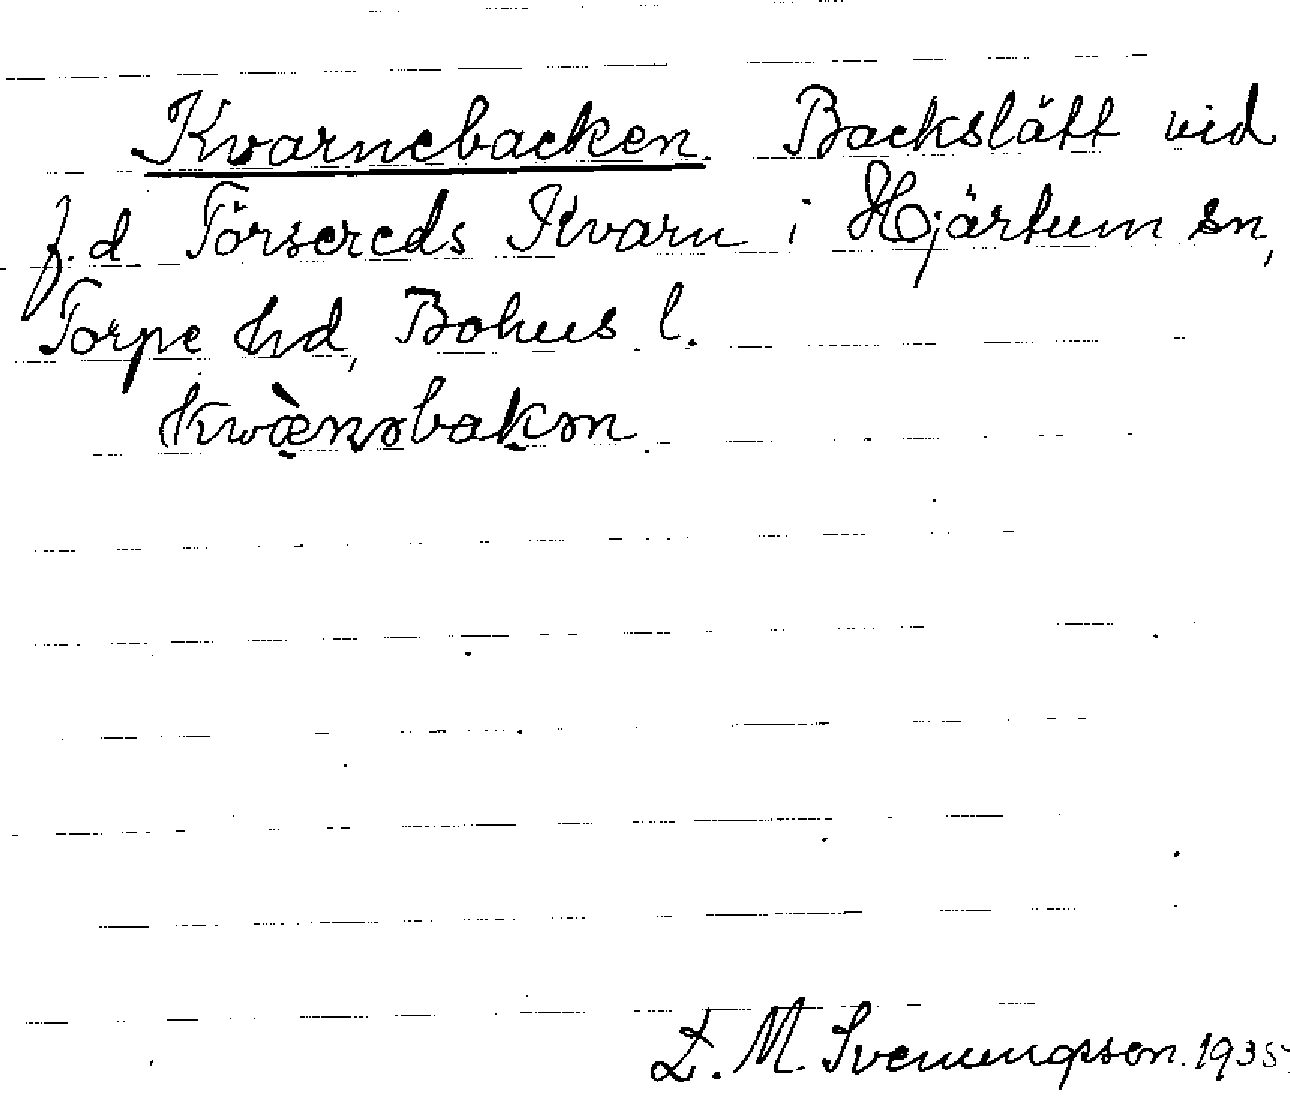 Kvarnebacken. Backslätt vid
f.d Törsereds Kvarn i Hjärtum sn,
Torpe hd, Bohus l.
kwæ̀nəbakən
L. M. Svenungson. 1935